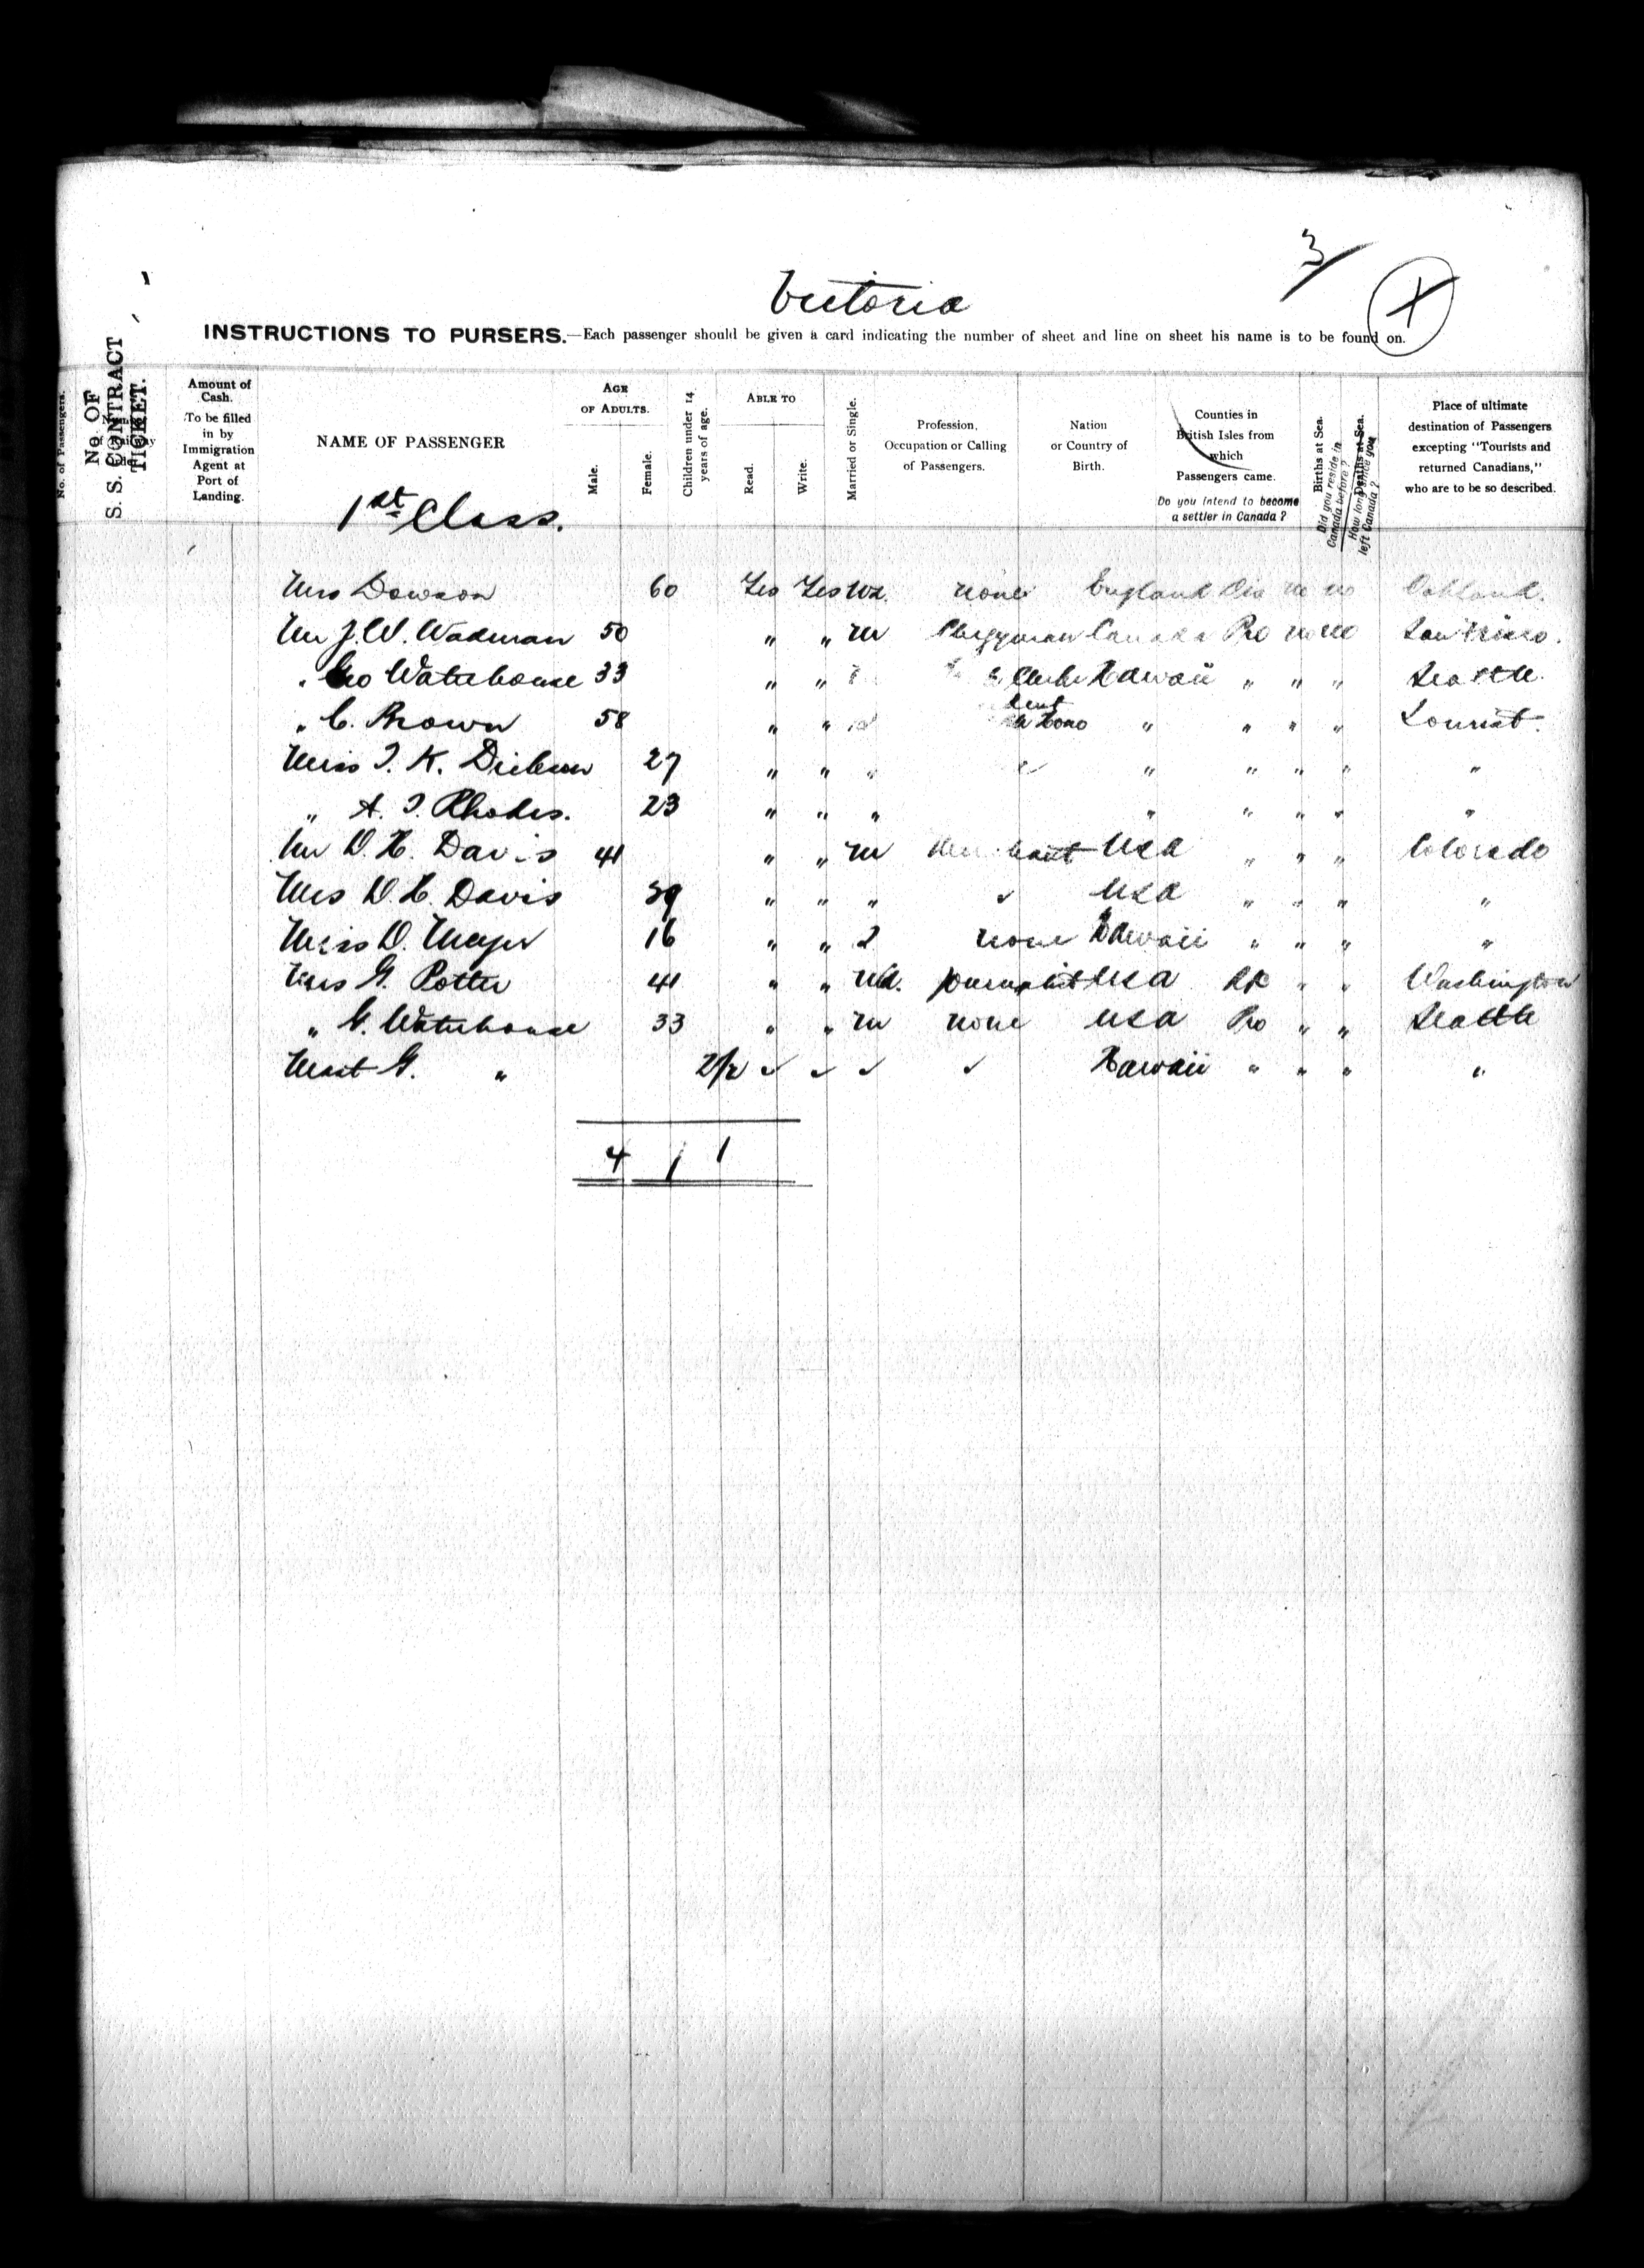 3/
Victoria
X
INSTRUCTIONS TO PURSERS.—Each passenger should be given a card indicating the number of sheet and line on sheet his name is to be found on.
No. of Passengers.
No OF
S. S. CONTRACT
TICKET.
Amount of Cash. To be filled in by Immigration Agent at Port of Landing.
NAME OF PASSENGER
AGE OF ADULTS.
Male.
Female.
Children under 14 years of age.
ABLE TO
Read.
Write.
Married or Single.
Profession, Occupation or Calling of Passengers.
Nation or Country of Birth.
Counties in British Isles from which Passengers came.
Do you intend to become a settler in Canada?
Births at Sea.
Did you reside in Canada before?
Deaths at Sea.
How long since you left Canada?
Place of ultimate destination of Passengers excepting "Tourists and returned Canadians," who are to be so described.
1st Class.
Mrs Dowson 60 Yes Yes Wd. none England no no Oakland.
Mr J. W. Wadman 50 " " m Clergyman Canada Pro no no San Frisco.
" Geo Waterhouse 33 " " Hawaii " " " Seattle.
" C. Brown 58 " " " " " " Tourist.
Miss I. K. Dickson 27 " " " " " " " "
" A. I. Rhodes. 23 " " " " " " " "
Mr D. H. Davis 41 " " m Merchant USA " " " Colorado
Mrs D. H. Davis 39 " " " ✓ USA " " " "
Miss D. Meyer 16 " " S none Hawaii " " " "
Mrs G. Potter 41 " " Wd. journalist USA RC " " Washington
" G. Waterhouse 33 " " m none USA Pro " " Seattle
Mast G. " 2½ ✓ ✓ ✓ ✓ Hawaii " " " "
4 1 1